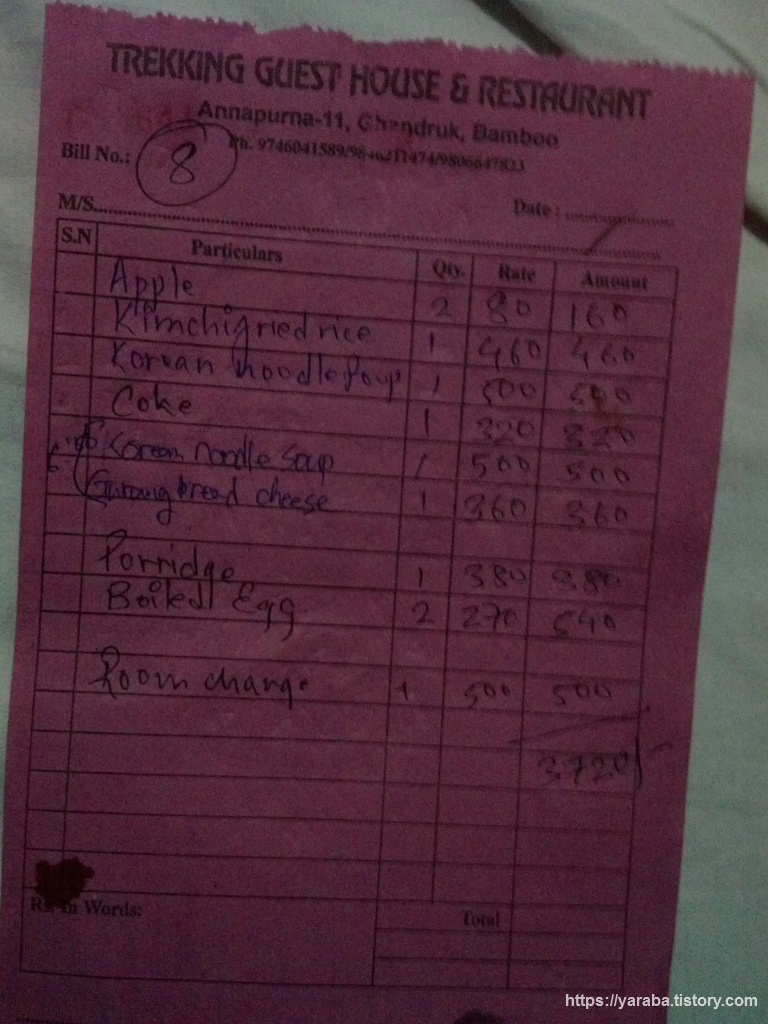 TREKKING GUEST HOUSE & RESTAURANT
Annapurna-11, Ghandruk, Bamboo
Ph. 9746041589/9846211474/9806647823
Bill No.: 8
Date :
M/S
S.N Particulars Qty. Rate Amount
Apple 2 80 160
Kimchi fried rice 1 460 460
Korean noodle Soup 1 500 500
Coke 1 320 320
Korean noodle Soup 1 500 500
Gurung bread cheese 1 360 360
Porridge 1 380 380
Boiled Egg 2 270 540
Room charge 1 500 500
3720/-
Rs. In Words: Total
https://yaraba.tistory.com